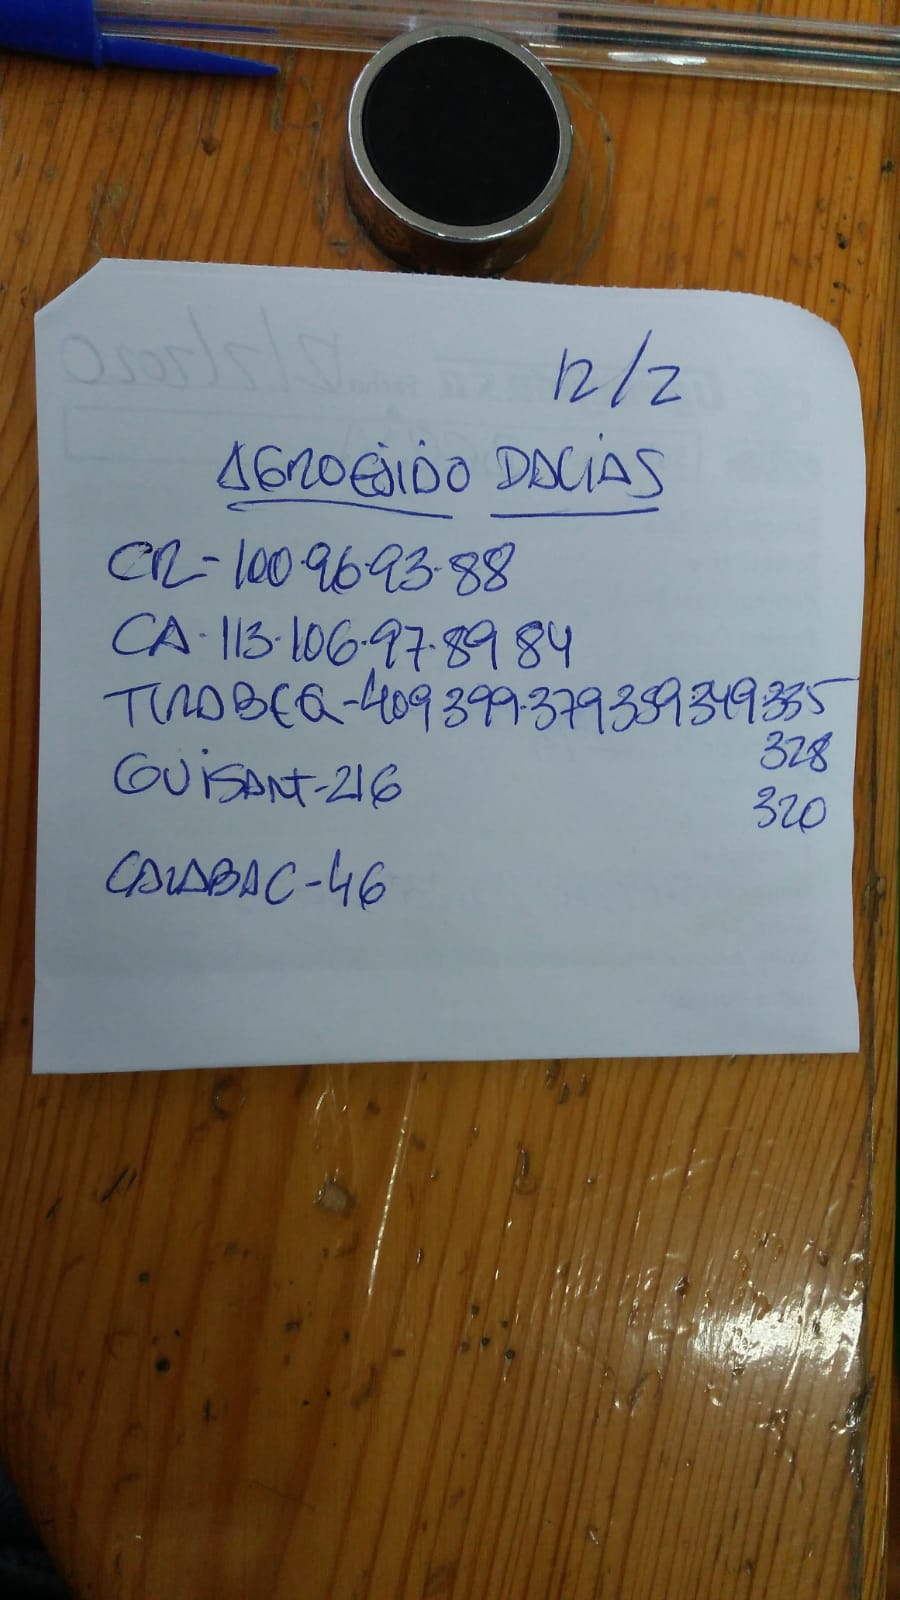 12/2
AGROEJIDO DALIAS
CR-100-96-93-88
CA-113-106-97-89 84
TIRABEQ-409 399-379 359 349 335
328
GUISANT-216
320
CALABAC-46
12/2/2020